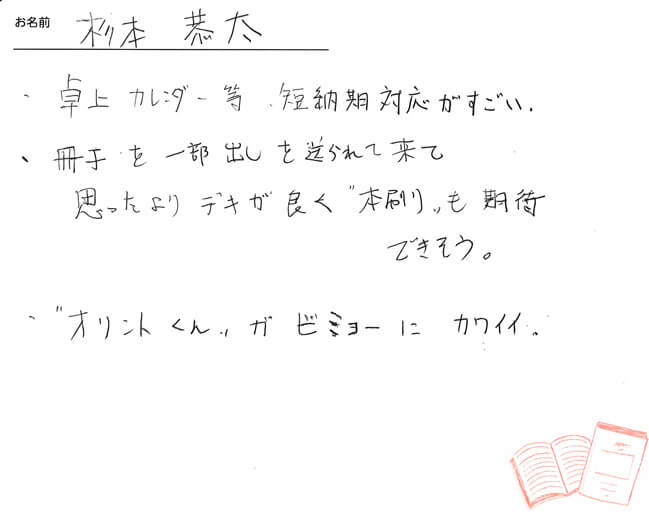 お名前 杉本 恭太
・卓上カレンダー等、短納期対応がすごい.
・冊子を一部出しを送られて来て
思ったよりデキが良く"本刷り〟も期待
できそう。
・"オリントくん〟がビミョーにカワイイ。